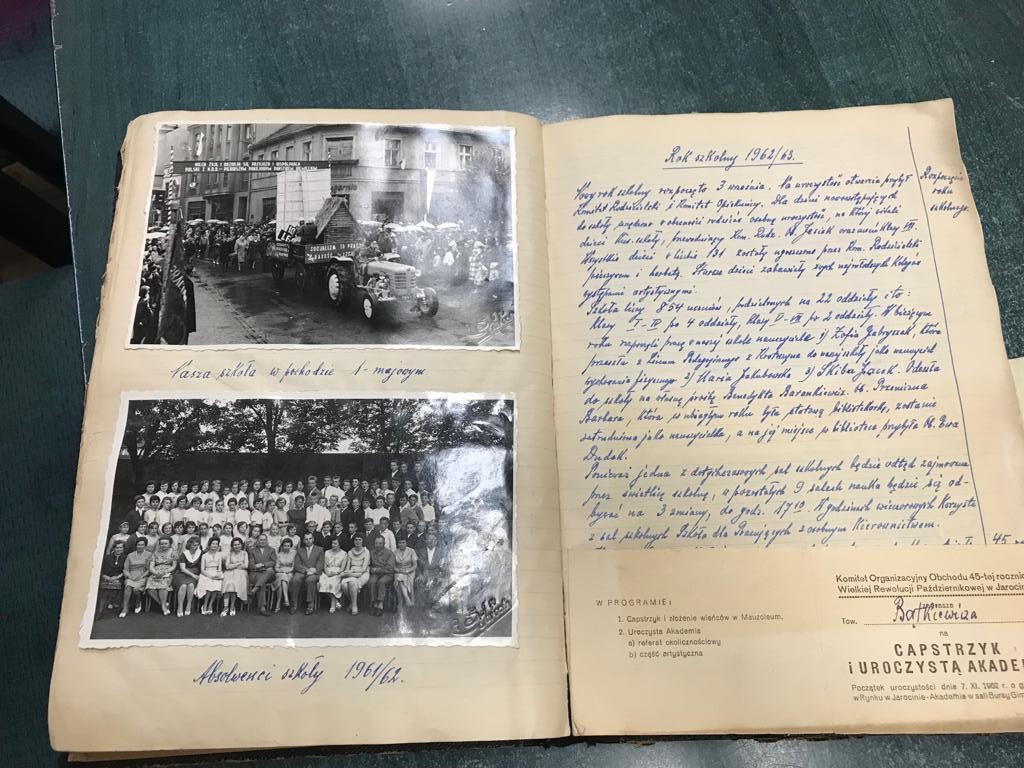 NIECH ŻYJE I ROZWIJA SIĘ PRZYJAŹŃ I WSPÓŁPRACA
POLSKI Z N.R.D. - PIERWSZYM
SOCJALIZM TO PRACA
Nasza szkoła w pochodzie 1-majowym
Absolwenci szkoły 1961/62.
Rok szkolny 1962/63.
Rozpoczęcie
roku
szkolnego.
Nowy rok szkolny rozpoczęto 3 września. Na uroczystość otwarcia przybył
Komitet Rodzicielski i Komitet Opiekuńczy. Dla dzieci nowowstępujących
do szkoły urządzono w obecności rodziców osobną uroczystość, na której witali
dzieci Kier. szkoły, przewodniczący Kom. Rodz. Ob. Jasiek oraz uczniowie klasy VII.
Wszystkie dzieci w liczbie 131 zostały ugoszczone przez Kom. Rodzicielski
pieczywem i herbatą. Starsze dzieci zabawiały swych najmłodszych kolegów
występami artystycznymi.
Szkoła liczy 854 uczniów, podzielonych na 22 oddziały i to:
klasy I-IV po 4 oddziały, klasy V-VII po 2 oddziały. W bieżącym
roku rozpoczęli pracę w naszej szkole nauczyciele 1) Zofia Gabryszak, która
przeszła z Liceum Pedagogicznego z Krotoszyna do naszej szkoły jako nauczyciel
wychowania fizycznego 2) Maria Jakubowska 3) Skiba Jacek. Odeszła
ze szkoły na własną prośbę Benedykta Barankiewicz. Ob. Przemierna
Barbara, która w ubiegłym roku była etatową bibliotekarką, zostanie
zatrudniona jako nauczycielka, a na jej miejsce w bibliotece przybyła Ob. Ewa
Dudek.
Ponieważ jedna z dotychczasowych sal szkolnych będzie odtąd zajmowana
przez świetlicę szkolną, w pozostałych 9 salach nauka będzie się od-
bywać na 3 zmiany, do godz. 17¹⁰. W godzinach wieczorowych korzysta
z sal szkolnych Szkoła dla Pracujących z osobnym Kierownictwem.
45
W PROGRAMIE:
1. Capstrzyk i złożenie wieńców w Mauzoleum.
2. Uroczysta Akademia
a) referat okolicznościowy
b) część artystyczna
Komitet Organizacyjny Obchodu 45-tej roczni
Wielkiej Rewolucji Październikowej w Jaroci
zaprasza
Tow. Bartkiewicza
na
CAPSTRZYK
i UROCZYSTĄ AKADE
Początek uroczystości dnia 7. XI. 1962 r. o g
w Rynku w Jarocinie-Akademia w sali Bursy Gim